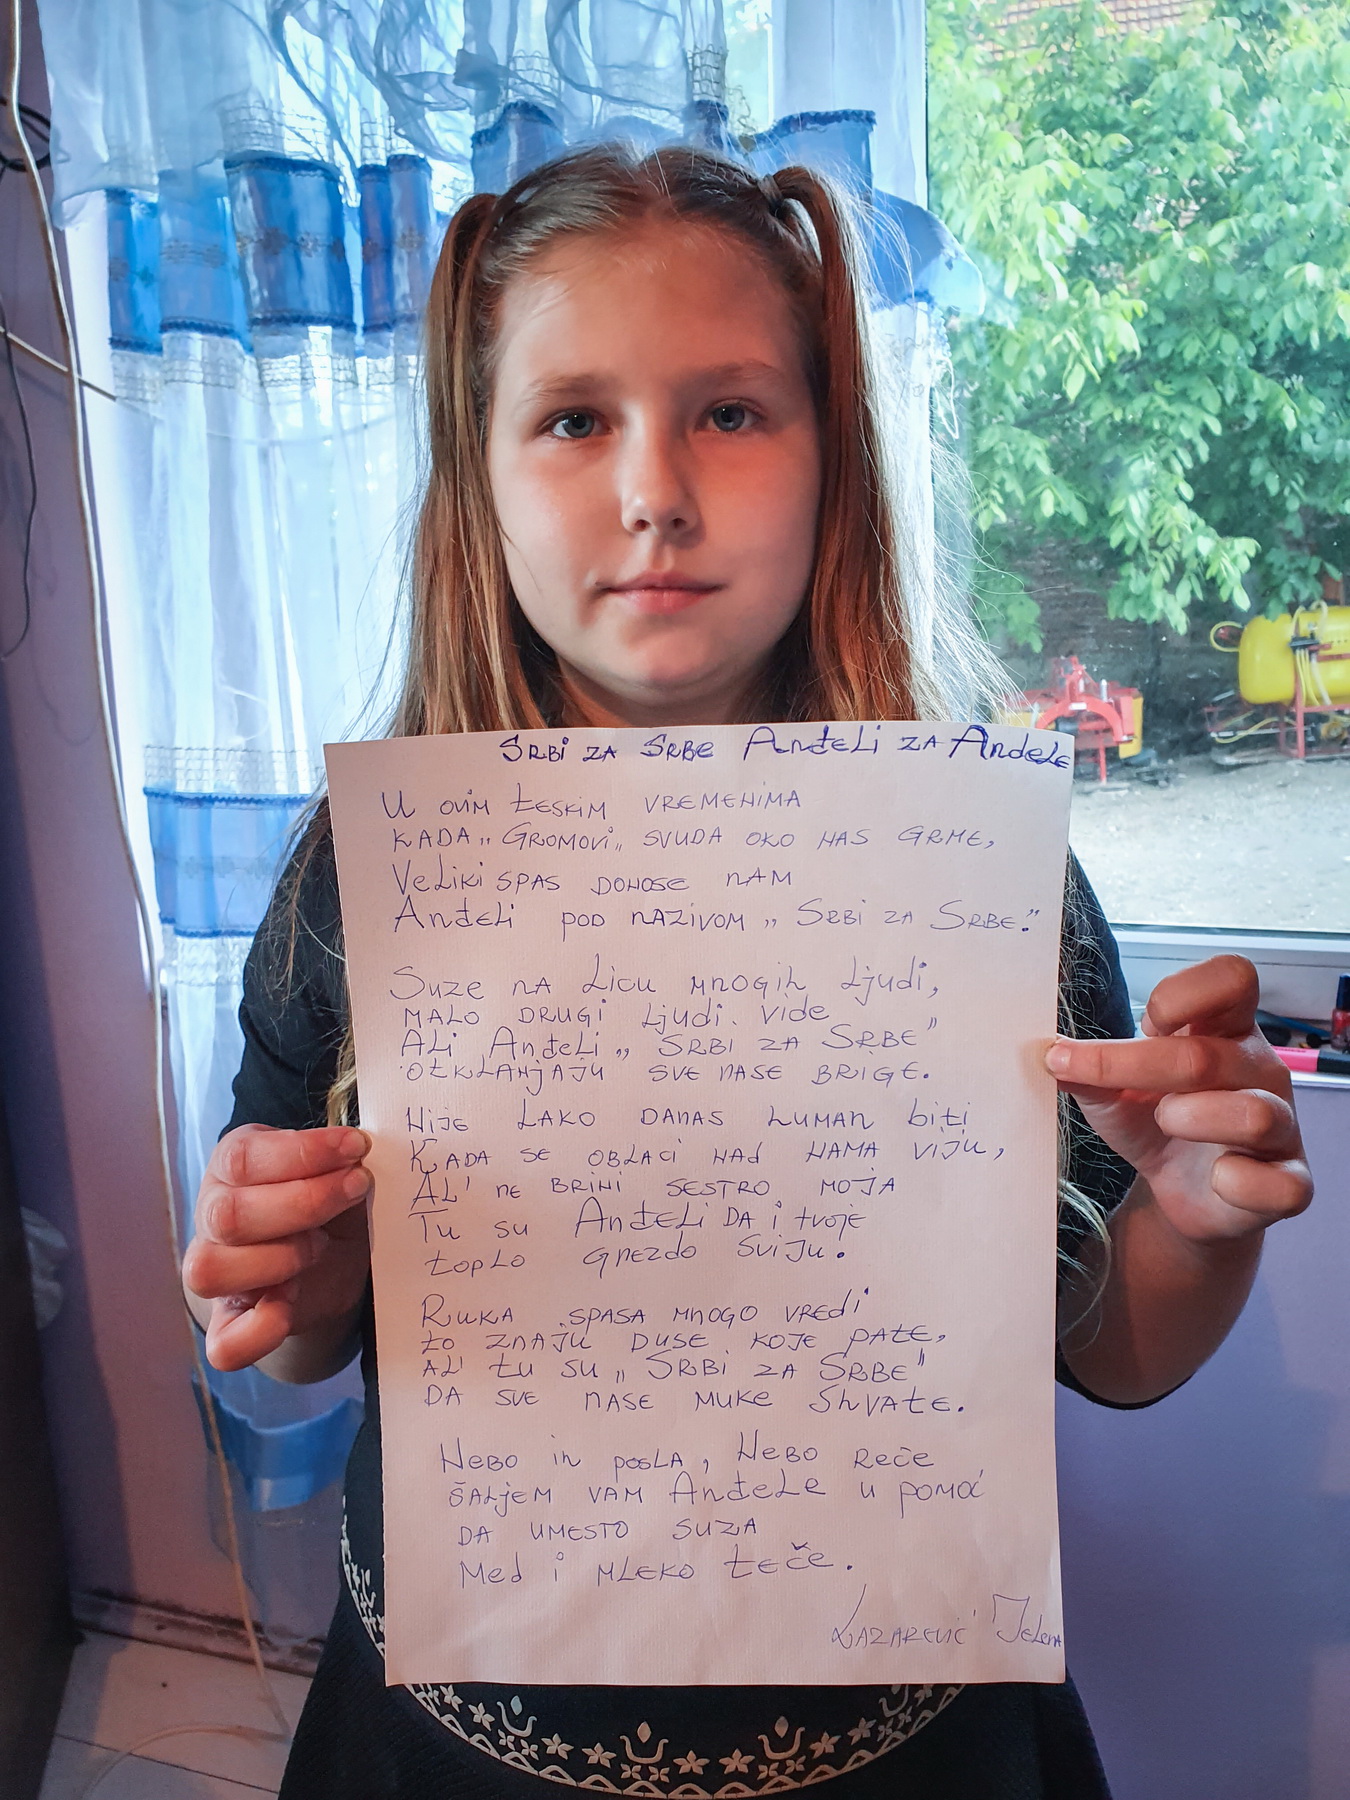 SRBi ZA SRBE AnđeLi ZA AnđeLE
U OViM tESKiM VREMENiMA
KADA „GROMOVi„ SVUDA OKO NAS GRME,
VeLiKi SPAS DONOSE NAM
AnđeLi POD NAZiVOM „SRBi ZA SRBE."
Suze nA Licu mnogih Ljudi,
MALO DRUGi Ljudi vide
ALi AnđeLi „SRBi ZA SRBE"
OtKLAnjAJU SVE NASE BRiGE.
NijE LAKO DANAS HUMAN biti
KADA SE OBLACi NAd NAMA Viju,
AL' NE BRiNi SESTRO MOJA
Tu su AnđeLi DA i tvoje
topLo gnezdo sviju.
RUKA SPASA MNOGO VREdi
to ZNAJU DUSE KOJE PAtE,
AL' tu su „SRBi ZA SRBE"
DA SVE NASE MUKE ShVAtE.
NeBO ih posLA, NeBO Reče
ŠALjEM VAM AnđeLe u pomoć
DA UMESTO SUZA
Med i MLEKO tEče.
LAZAREVić JeLenA